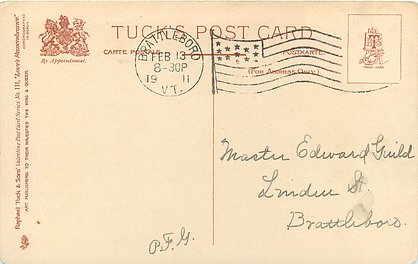 TUCK'S POST CARD
CARTE POSTALE
POSTKARTE
(FOR ADDRESS ONLY.)
By Appointment.
BRATTLEBORO
FEB 13
8-30P
19 11
VT.
Raphael Tuck & Sons' Valentine Post Card Series No. 111, "Love's Remembrance"
ART PUBLISHERS TO THEIR MAJESTIES THE KING & QUEEN.
TRADE MARK
Master Edward Guild
Linden St.
Brattleboro.
P.F.G.